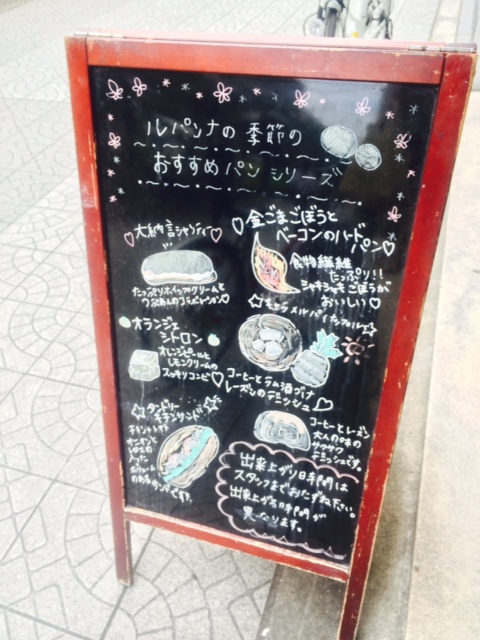 ルパンナの季節の
おすすめパンシリーズ
大納言シャンティー
たっぷりホイップクリームと
つぶあんのコラボレーション♡
金ごまごぼうと
ベーコンのハードパン♡
食物繊維
たっぷり!!
シャキシャキごぼうが
おいしい♡
☆キャラメルパイナップル☆
オランジェ
シトロン
オレンジピールと
レモンクリームの
スッキリコンビ♡
コーヒーとラム酒づけ
レーズンのデニッシュ♡
コーヒーとレーズン
大人の味の
サクサク
デニッシュです。
☆タンドリー
チキンサンド☆
チキン、トマト
オニオンと
レタスの
ボリューム
のあるサンドです。
出来上がり時間は
スタッフまでおたずね下さい。
出来上がる時間が
異なります。